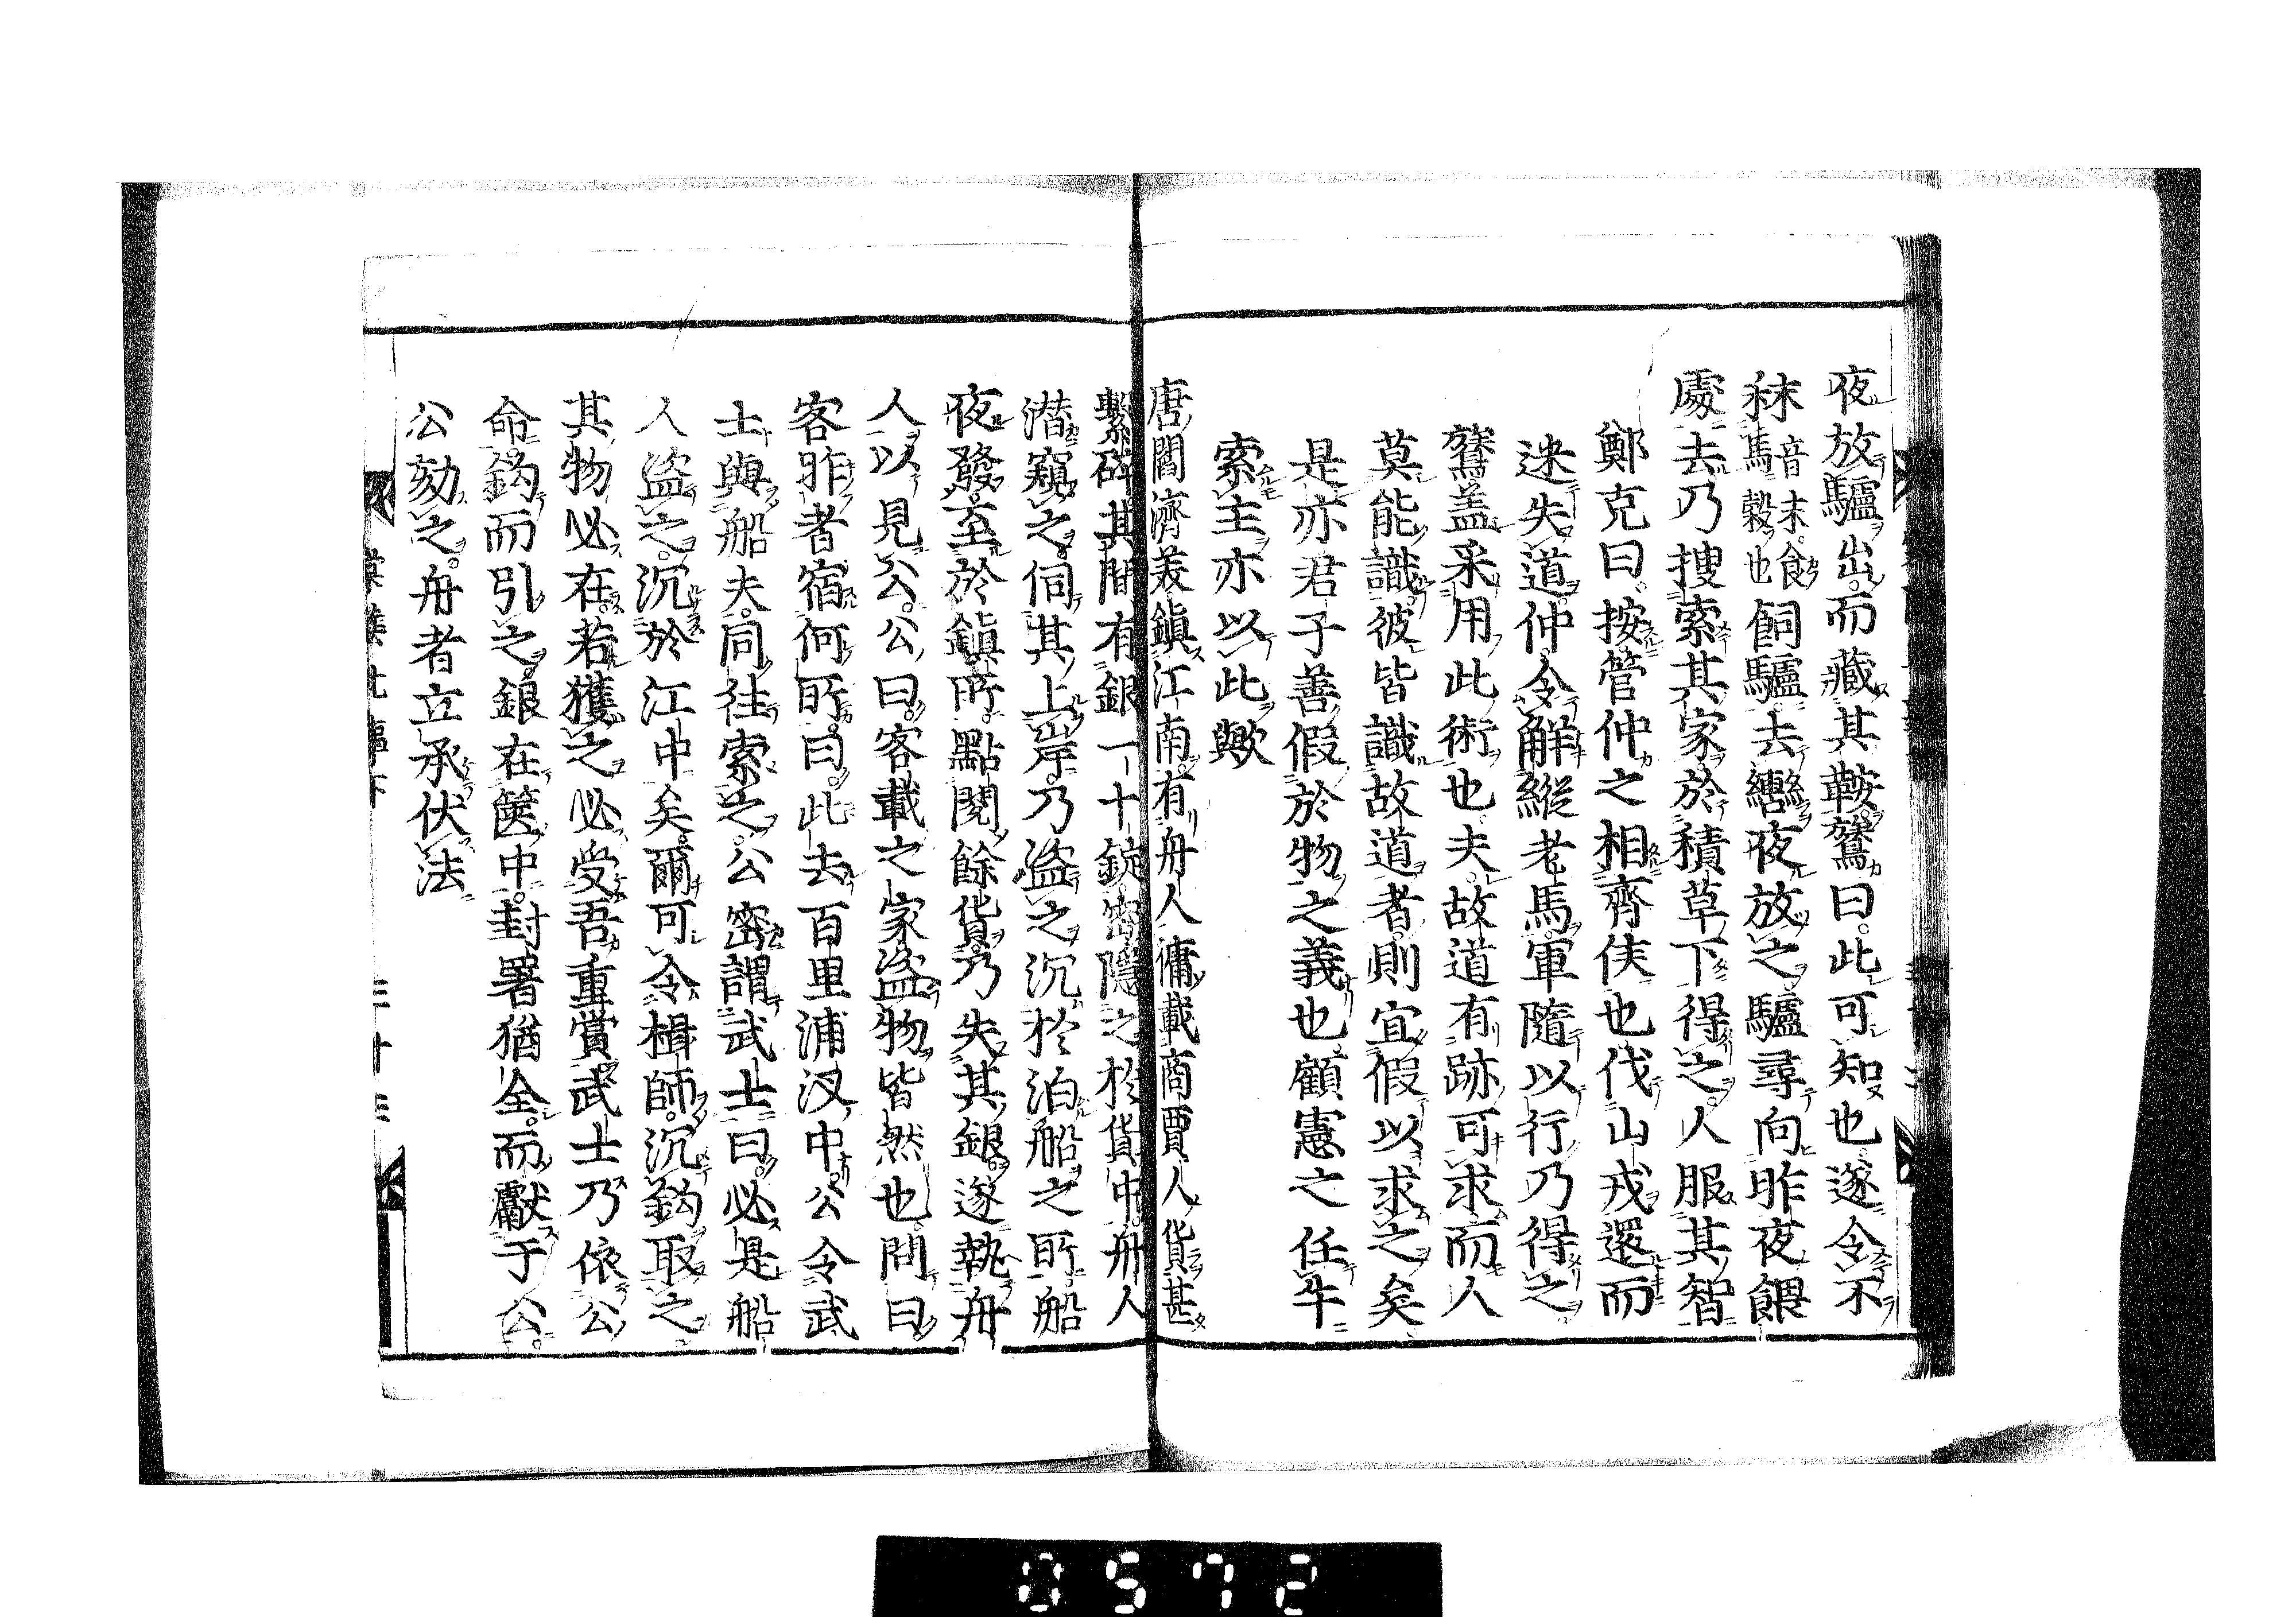 夜放驢出。而藏其鞍。鷟曰。此可知也。遂令不
秣馬音末。食穀也飼驢。去轡夜放之。驢尋向昨夜餵
處去。乃搜索其家。於積草下得之。人服其智
鄭克曰。按管仲之相齊侯也。伐山戎還而
迷失道。仲令解縱老馬。軍隨以行乃得之。
鷟盖采用此術也。夫故道有跡可求而人
莫能識。彼皆識故道者。則宜假以求之矣。
是亦君子善假於物之義也。顧憲之任牛
索主亦以此歟
唐閻濟美鎭江南。有舟人傭載商賈人貨甚
繫碎。其間有銀一十錠密隱之於貨中。舟人
潜窺之。伺其上岸。乃盜之沉於泊船之所。船
夜發。至於鎭所。點閱餘貨。乃失其銀。遂執舟
人以見公。公曰。客載之家盜物皆然也。問曰
客昨者宿何所。曰。此去百里浦汊中。公令武
士與船夫。同往索之。公密謂武士曰。必是船
人盜之。沉於江中矣。爾可令楫師。沉鈎取之。
其物必在。若獲之必受吾重賞。武士乃依公
命。鈎而引之。銀在篋中。封署猶全。而獻于公。
公劾之。舟者立承伏法
二十三
0572